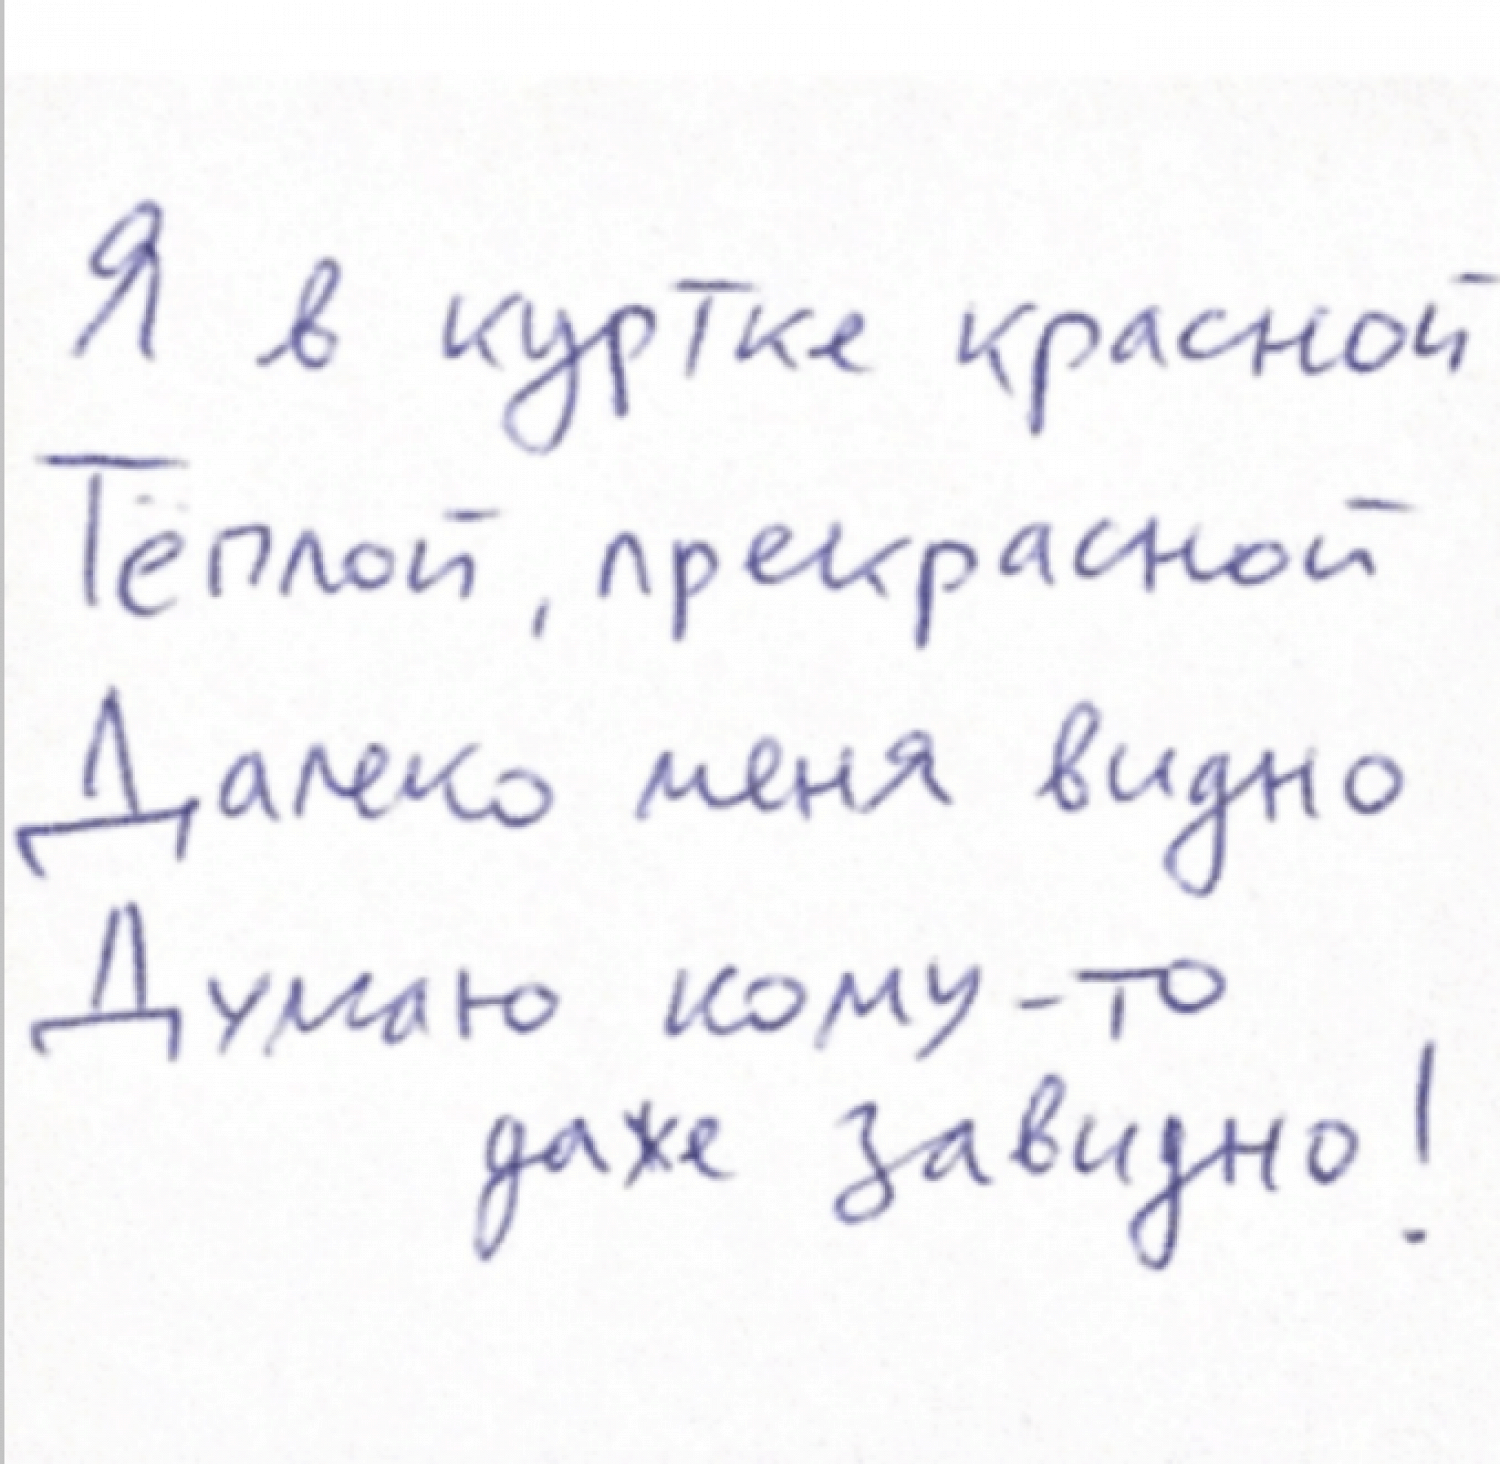 Я в куртке красной
Тёплой, прекрасной
Далеко меня видно
Думаю кому-то
даже завидно!